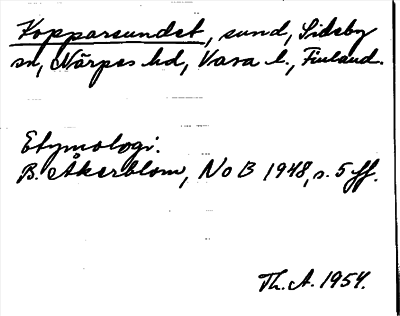 Kopparsundet, sund, Sideby
sn, Närpes hd, Vasa l., Finland.
Etymologi.
B. Åkerblom, NoB 1948, s. 5 ff.
Th. A. 1954.